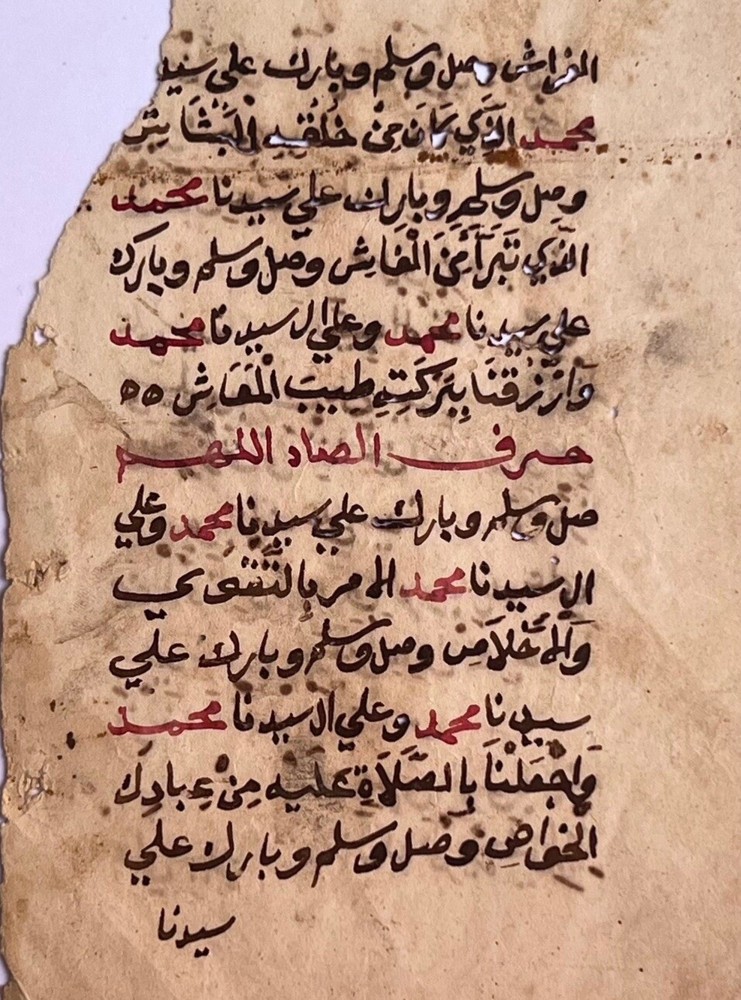 الفراش وصل وسلم وبارك علي سيد
محمد الذَي كَانَ مِنْ خُلُقِهِ البَشَا
وصل وسلم وبارك علي سيدنا محمد
الذي تَبَرَأمِنَ الْمغَاشِ وصل وسلم وبارك
علي سيدنا محمد وعلي ال سيدنا محمد
وَآرْزُقْنَا بِبَرَكَتِهِ طِيبَ الْمَعَاشِ ٥٥
حرف الصاد اللهم
صل وسلم وبارك علي سيدنا محمد وعلي
ال سيدنا محمد الامر بِالتَّقْوي
وَالاخْلاَصِ وصل وسلم وبارك علي
سيدنا محمد وعلي ال سيدنا محمد
وَاجْعَلْنَا بِالصَّلَاةِ عَلَيْهِ مِنْ عِبَادِكَ
الخوَاصِ وصل وسلم وبارك علي
سيدنا